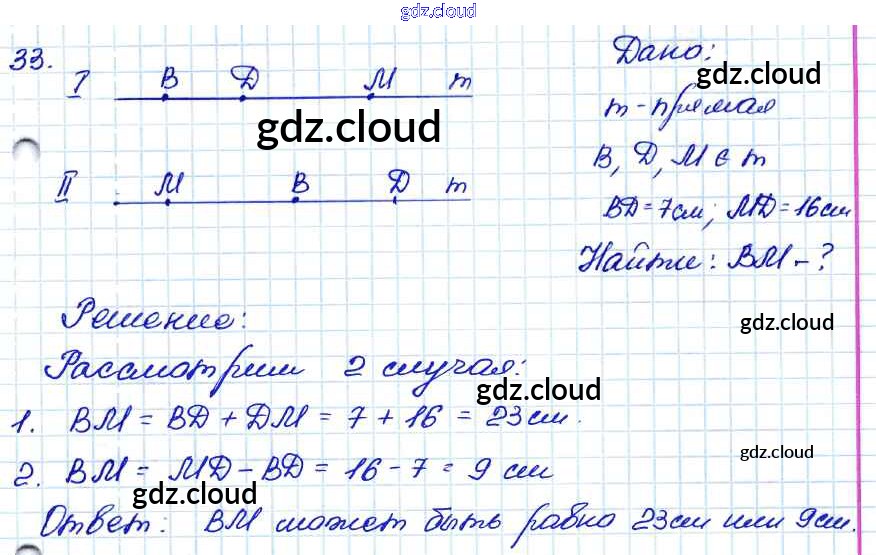 gdz.cloud
33.
I B D M m
Дано:
gdz.cloud
m - прямая
gdz.cloud
B, D, M ∈ m
II M B D m
BD = 7см; MD = 16см
Найти: BM - ?
Решение:
gdz.cloud
Рассмотрим 2 случая:
gdz.cloud
1. BM = BD + DM = 7 + 16 = 23см.
gdz.cloud
2. BM = MD - BD = 16 - 7 = 9 см
gdz.cloud
Ответ: BM может быть равно 23см или 9см.
gdz.cloud